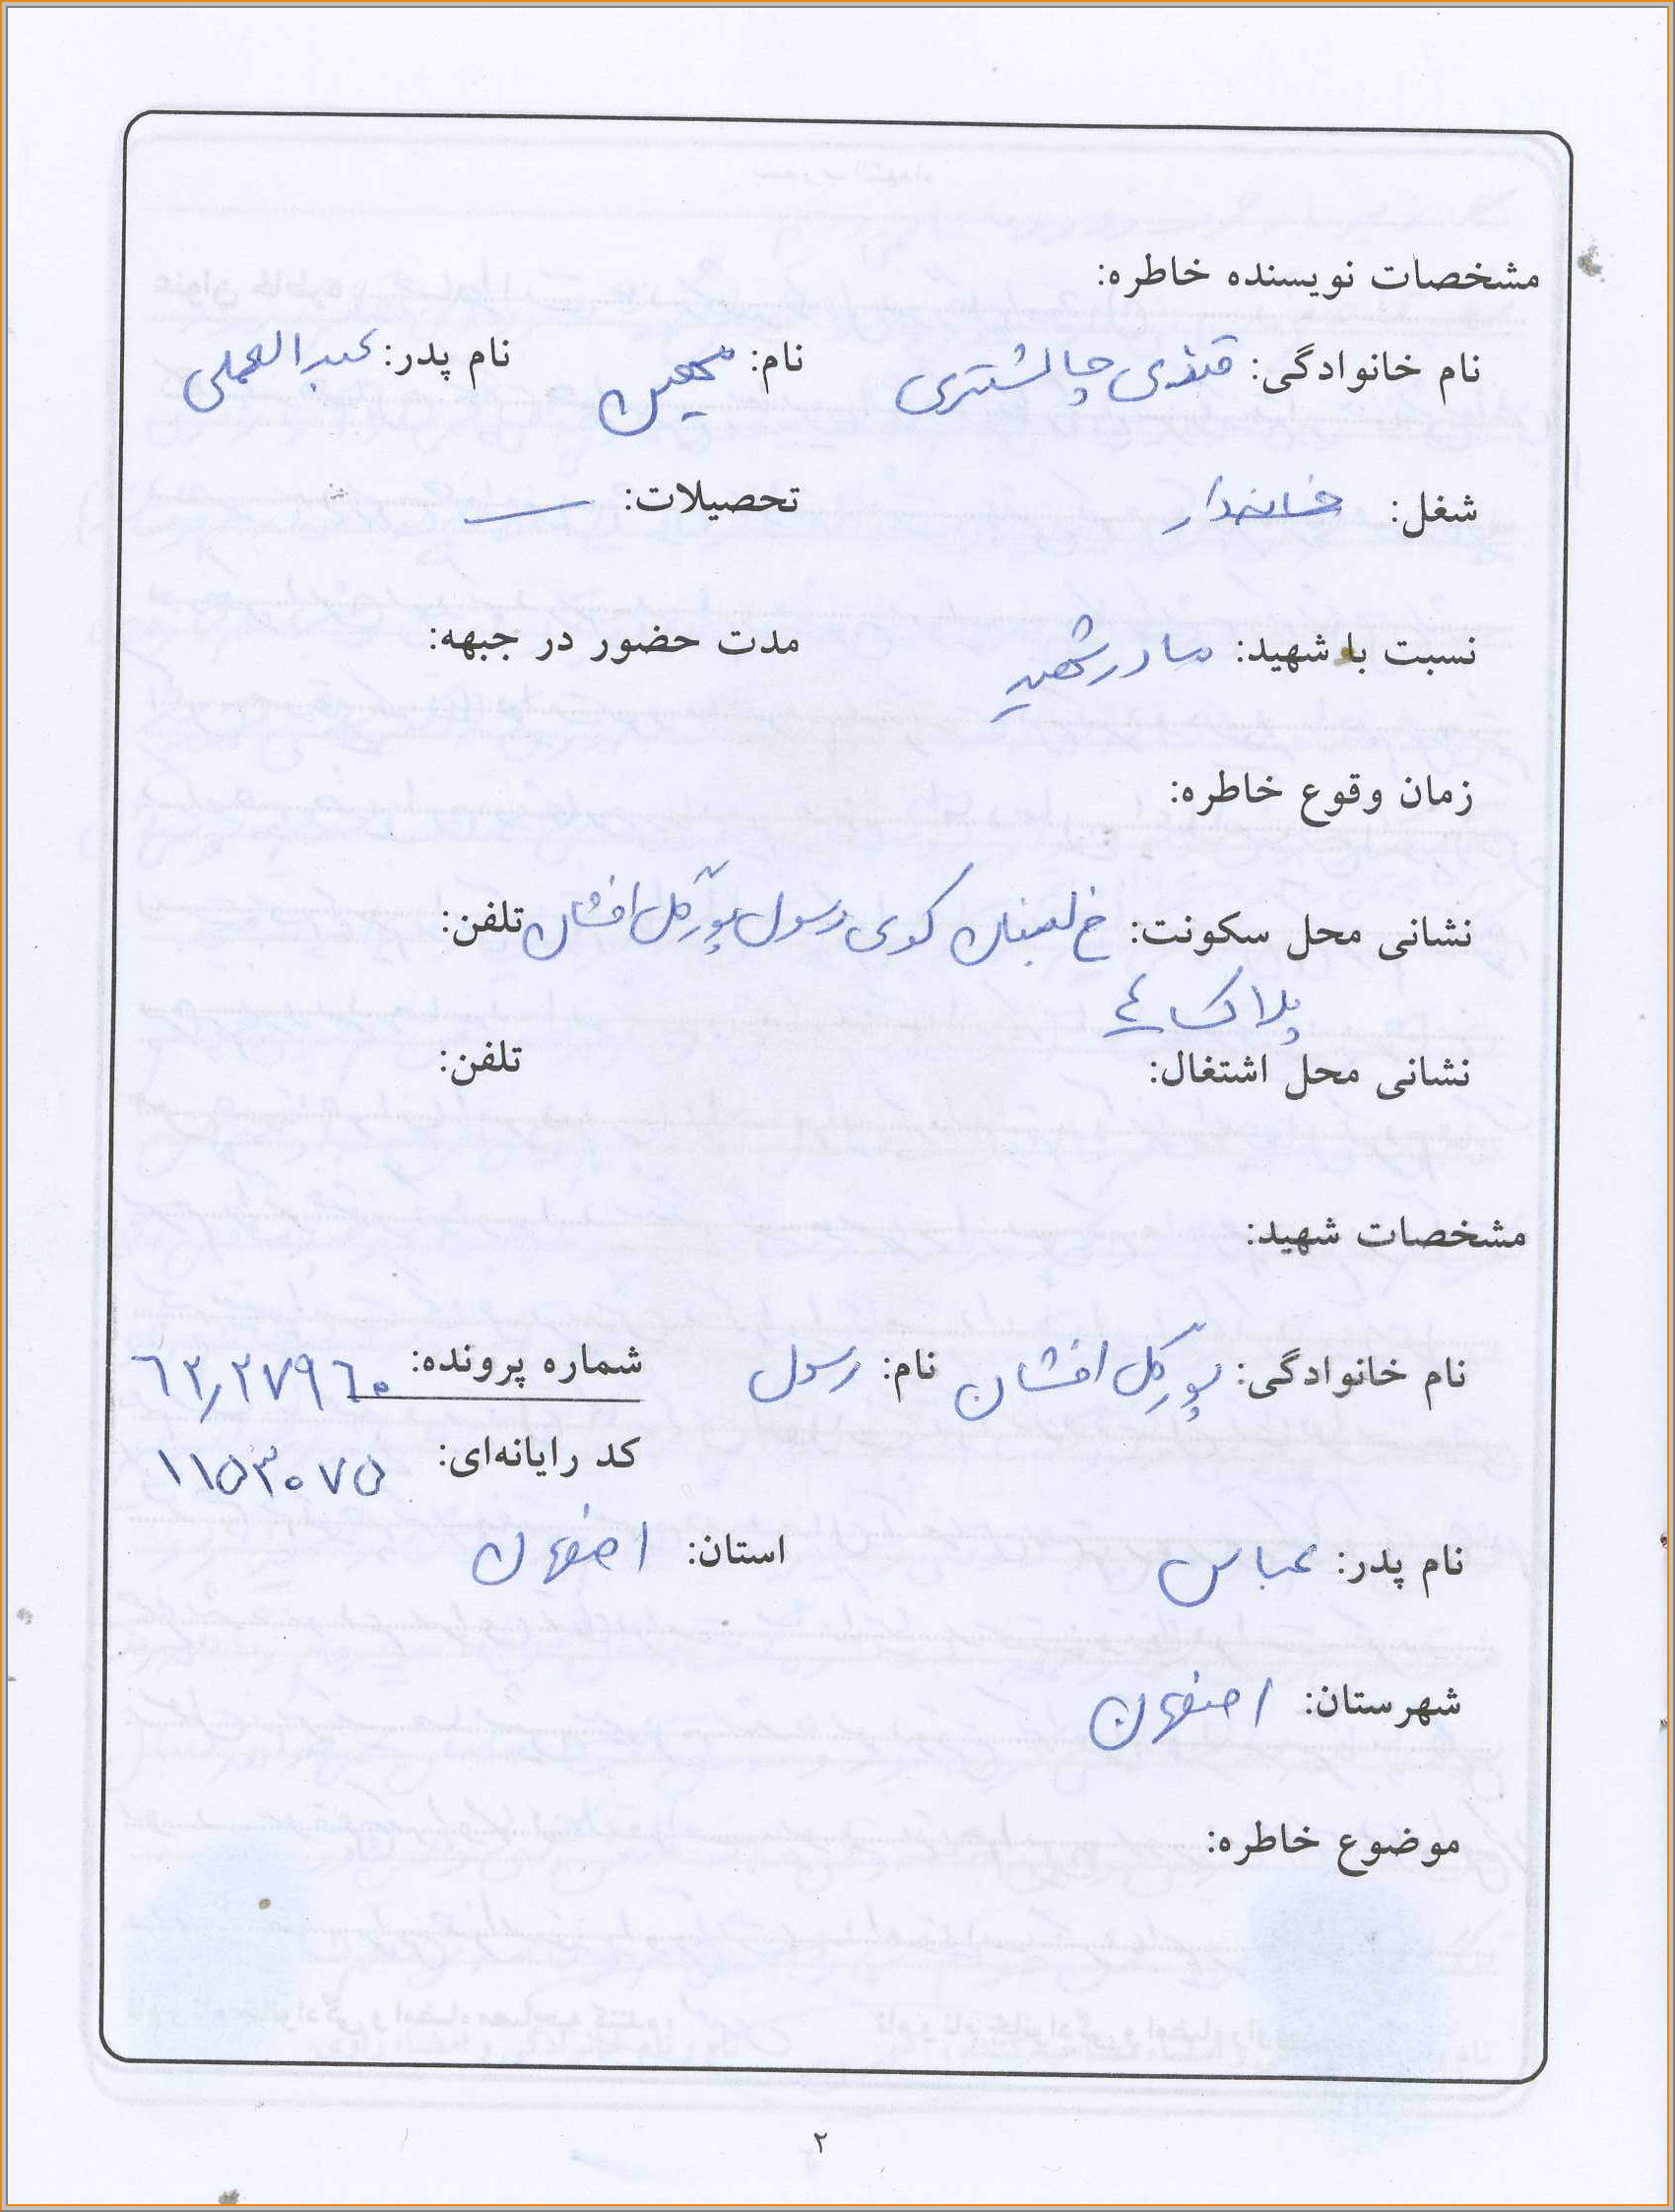 مشخصات نویسنده خاطره:
نام خانوادگی: قنفذی چالشتری نام: مهین نام پدر: عبدالعلی
شغل: خانه‌دار تحصیلات: —
نسبت با شهید: مادر شهید مدت حضور در جبهه:
زمان وقوع خاطره:
نشانی محل سکونت: خ لبنان کوی رسول پورگل افشان تلفن:
پلاک ٤
نشانی محل اشتغال: تلفن:
مشخصات شهید:
نام خانوادگی: پورگل افشان نام: رسول شماره پرونده: ٦٢٫٢٧٩٦٠
کد رایانه‌ای: ۱۱۵۳۰۷۵
نام پدر: عباس استان: اصفهان
شهرستان: اصفهان
موضوع خاطره:
۲